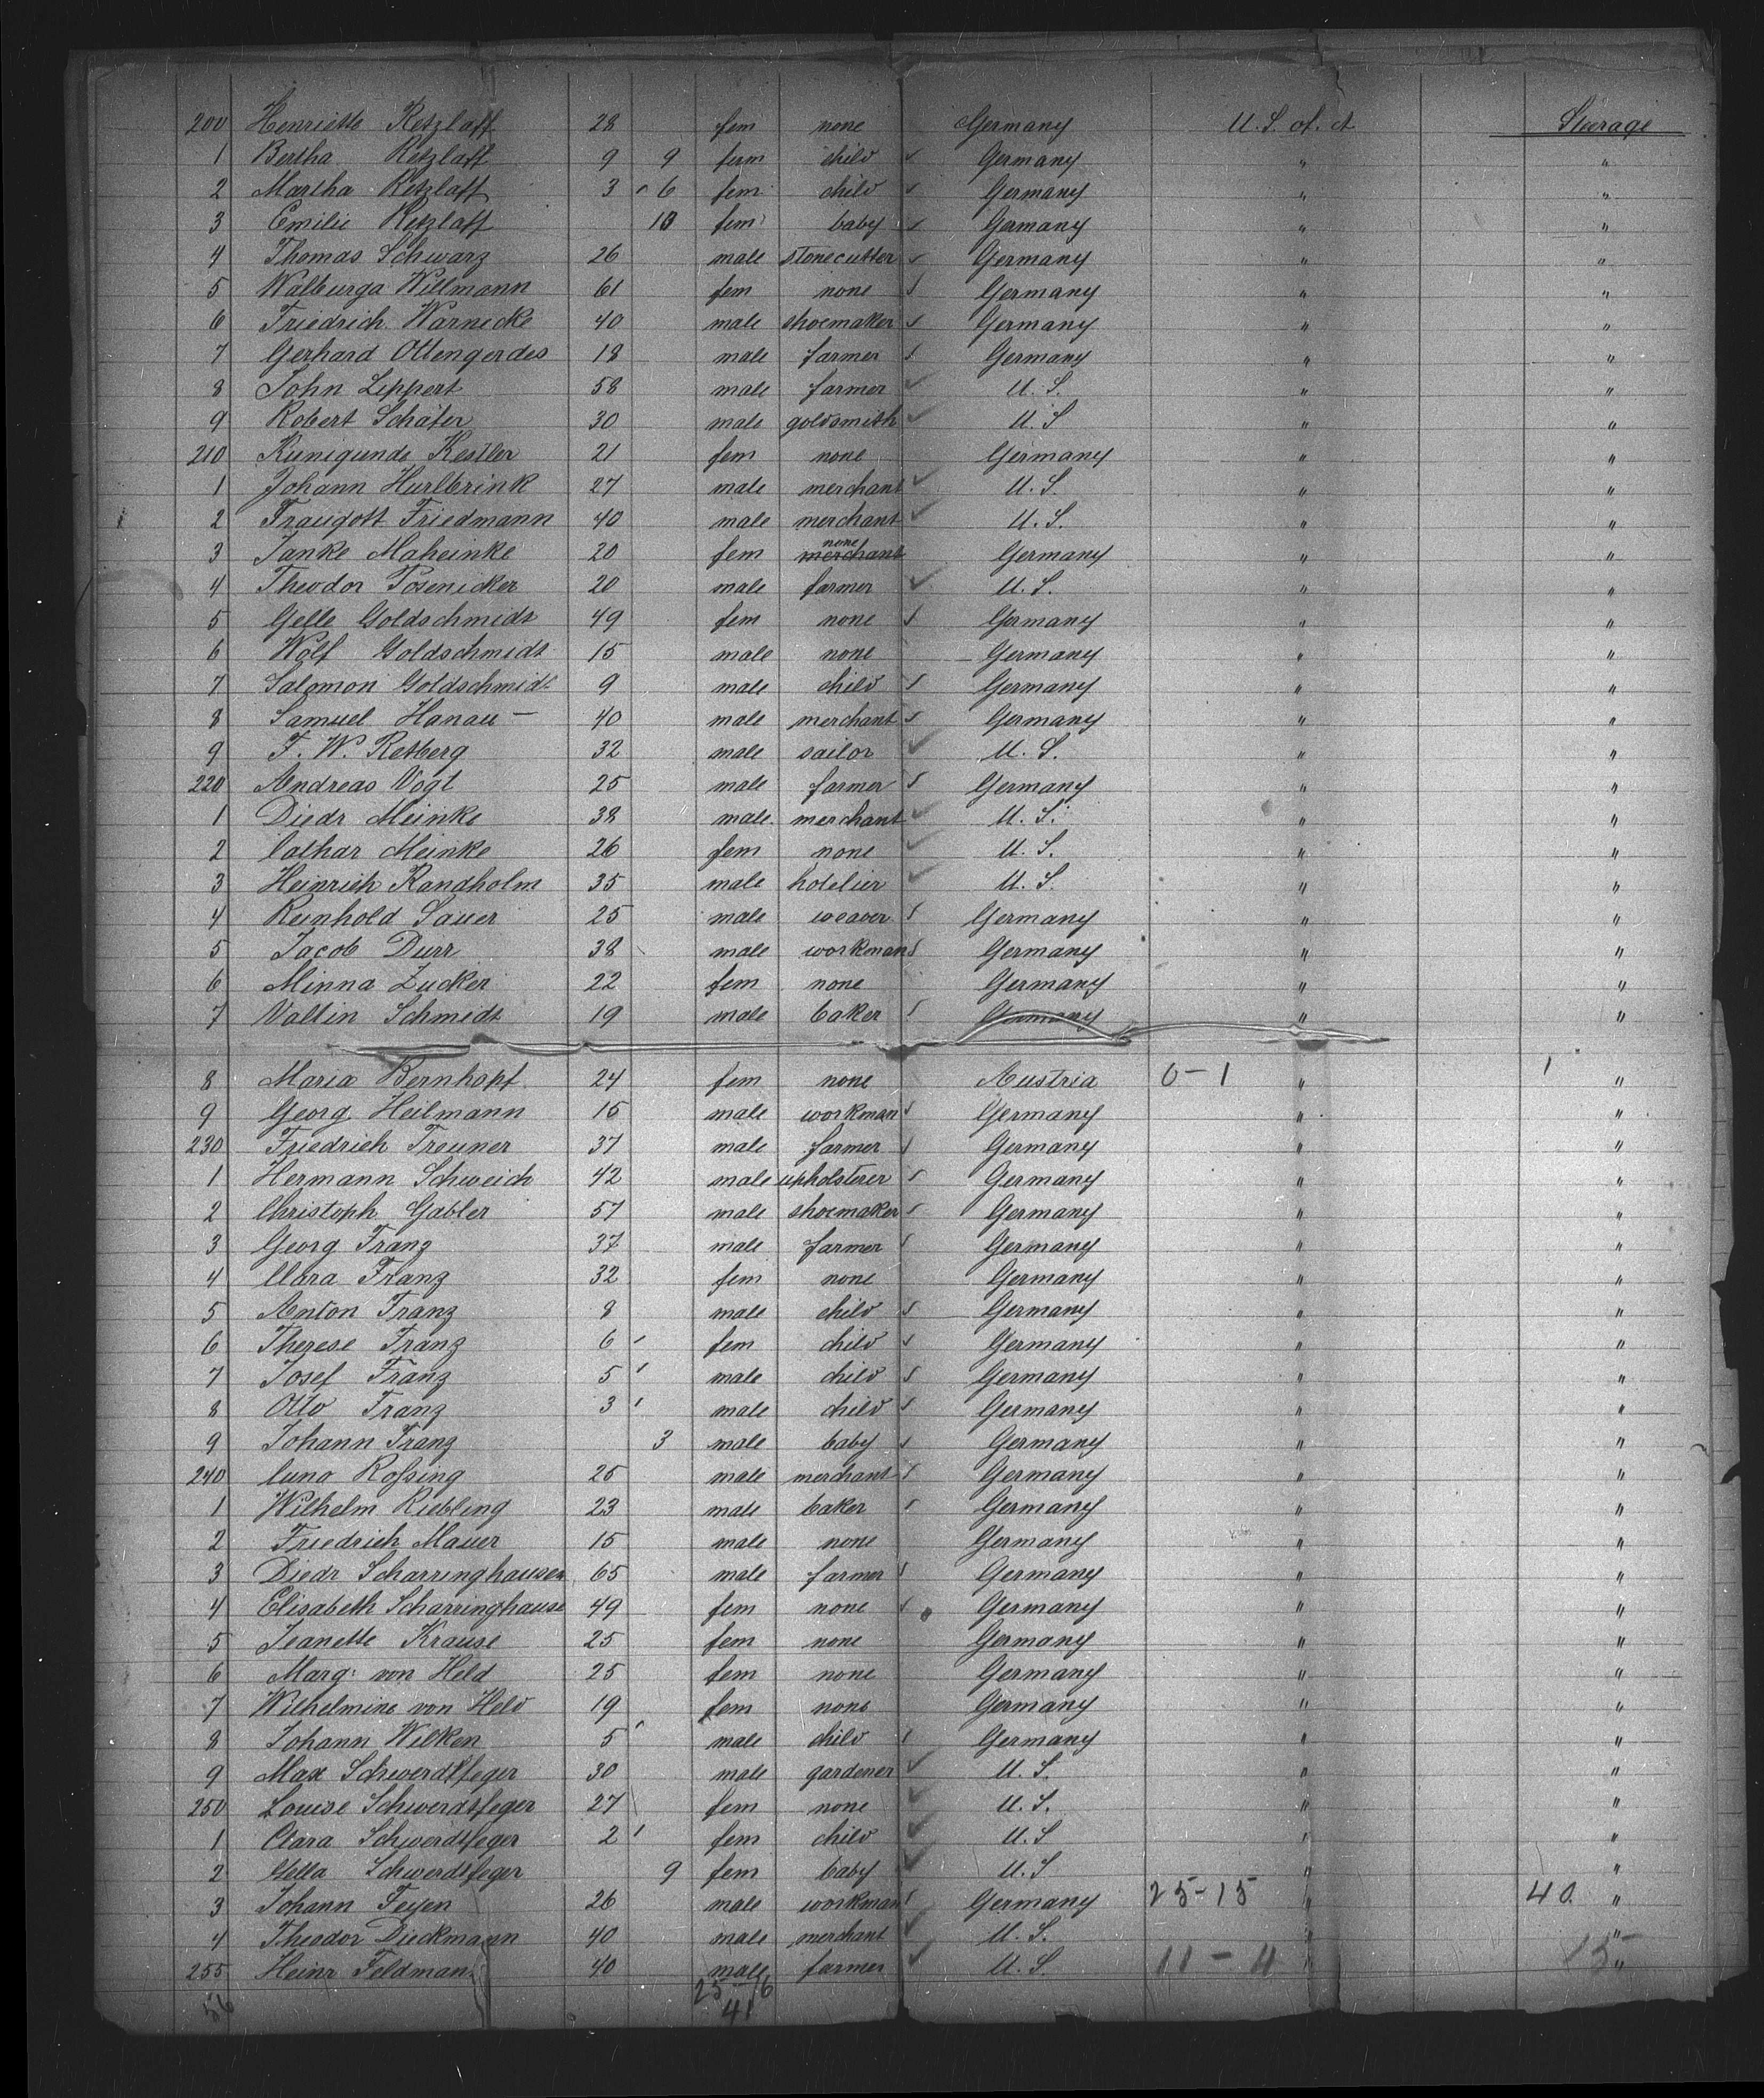 200 Henriette Retzlaff 28 fem none Germany U. S. of. A Steerage
1 Bertha Retzlaff 9 9 fem child Germany " "
2 Martha Retzlaff 3 6 fem child Germany " "
3 Emilie Retzlaff 10 fem baby Germany " "
4 Thomas Schwarz 26 male stonecutter Germany " "
5 Walburga Willmann 61 fem none Germany " "
6 Friedrich Warnecke 40 male shoemaker Germany " "
7 Gerhard Ottengerdes 18 male farmer Germany " "
8 John Leppert 58 male farmer U. S. " "
9 Robert Schäfer 30 male goldsmith U. S " "
210 Kunigunde Kestler 21 fem none Germany " "
1 Johann Hurlbrink 27 male merchant U. S. " "
2 Traugott Friedmann 40 male merchant U. S. " "
3 Janke Maheinke 20 fem none merchant Germany " "
4 Theodor Posenicker 20 male farmer U. S. " "
5 Gelle Goldschmidt 49 fem none Germany " "
6 Wolf Goldschmidt 15 male none Germany " "
7 Salomon Goldschmidt 9 male child Germany " "
8 Samuel Hanau 40 male merchant Germany " "
9 F. W. Retberg 32 male sailor U. S. " "
220 Andreas Vogt 25 male farmer Germany " "
1 Diedr Meinke 38 male merchant U. S. " "
2 Cathar Meinke 26 fem none U. S. " "
3 Heinrich Randholm 35 male hotelier U. S. " "
4 Reinhold Sauer 25 male weaver Germany " "
5 Jacob Durr 38 male workman Germany " "
6 Minna Zucker 22 fem none Germany " "
7 Valtin Schmidt 19 male baker Germany " "
8 Maria Bernhopf 24 fem none Austria 0-1 " 1 "
9 Georg Heilmann 15 male workman Germany " "
230 Friedrich Treuner 37 male farmer Germany " "
1 Hermann Schweich 42 male upholsterer Germany " "
2 Christoph Gabler 57 male shoemaker Germany " "
3 Georg Franz 37 male farmer Germany " "
4 Clara Franz 32 fem none Germany " "
5 Anton Franz 8 male child Germany " "
6 Therese Franz 6 fem child Germany " "
7 Josef Franz 5 male child Germany " "
8 Otto Franz 3 male child Germany " "
9 Johann Franz 3 male baby Germany " "
240 Cuno Rossing 25 male merchant Germany " "
1 Wilhelm Riebling 23 male baker Germany " "
2 Friedrich Mauer 15 male none Germany " "
3 Diedr Scharringhausen 65 male farmer Germany " "
4 Elisabeth Scharringhause 49 fem none Germany " "
5 Jeanette Krause 25 fem none Germany " "
6 Marg: von Held 25 fem none Germany " "
7 Wilhelmine von Held 19 fem none Germany " "
8 Johann Wilken 5 male child Germany " "
9 Max Schwerdtfeger 30 male gardener U. S. " "
250 Louise Schwerdtfeger 27 fem none U. S. " "
1 Clara Schwerdtfeger 2 fem child U. S " "
2 Schwerdtfeger 9 fem baby U. S " "
3 Johann Feyen 26 male workman Germany 25-15 " 40. "
4 Theodor Dieckmann 40 male merchant U. S. " "
255 Heinr Feldman 40 male farmer U. S. 11-4 " 15 "
56 25 16
41